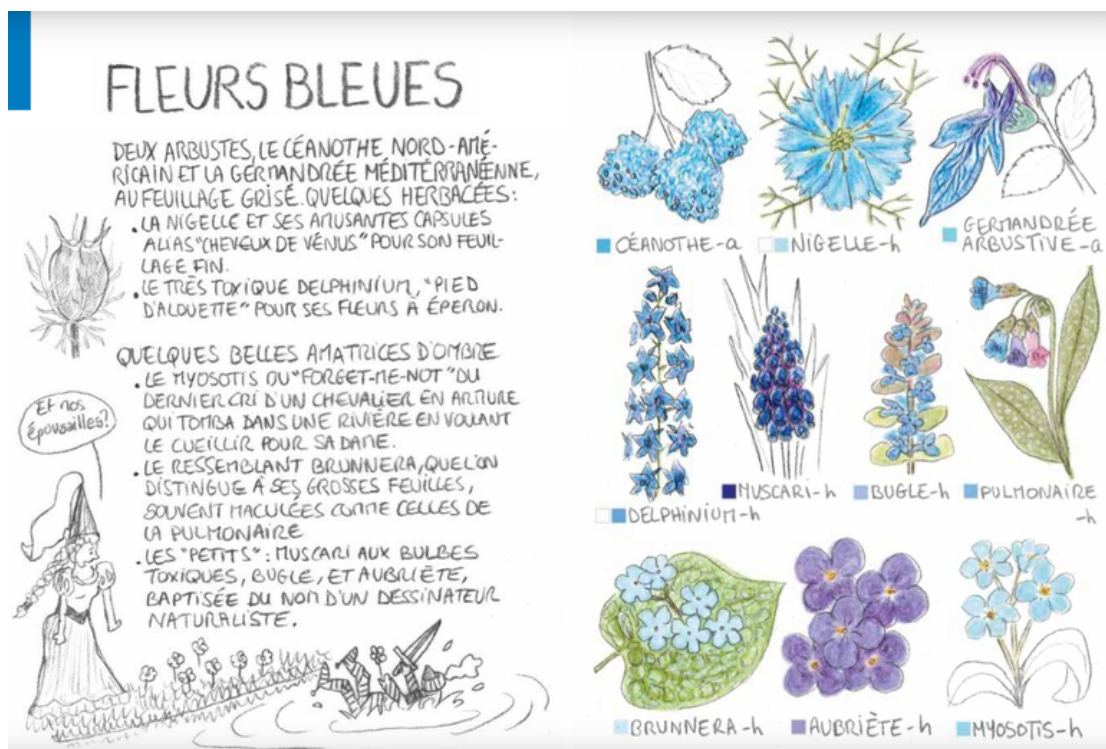 FLEURS BLEUES
DEUX ARBUSTES, LE CÉANOTHE NORD-AMÉ-
RICAIN ET LA GERMANDRÉE MÉDITERRANÉENNE,
AU FEUILLAGE GRISÉ. QUELQUES HERBACÉES :
• LA NIGELLE ET SES AMUSANTES CAPSULES
ALIAS "CHEVEUX DE VÉNUS" POUR SON FEUIL-
LAGE FIN.
• LE TRÈS TOXIQUE DELPHINIUM, "PIED
D'ALOUETTE" POUR SES FLEURS À ÉPERON.
QUELQUES BELLES AMATRICES D'OMBRE
• LE MYOSOTIS OU "FORGET-ME-NOT" DU
DERNIER CRI D'UN CHEVALIER EN ARMURE
QUI TOMBA DANS UNE RIVIÈRE EN VOULANT
LE CUEILLIR POUR SA DAME.
• LE RESSEMBLANT BRUNNERA, QUE L'ON
DISTINGUE À SES GROSSES FEUILLES,
SOUVENT MACULÉES COMME CELLES DE
LA PULMONAIRE
• LES "PETITS" : MUSCARI AUX BULBES
TOXIQUES, BUGLE, ET AUBRIÈTE,
BAPTISÉE DU NOM D'UN DESSINATEUR
NATURALISTE.
Et nos
épousailles?
CÉANOTHE-a
NIGELLE-h
GERMANDRÉE
ARBUSTIVE-a
DELPHINIUM-h
MUSCARI-h
BUGLE-h
PULMONAIRE
-h
BRUNNERA-h
AUBRIÈTE-h
MYOSOTIS-h